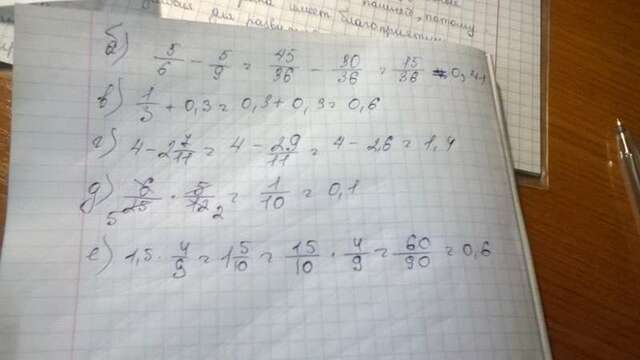 имеет благоприятны
для развит
б) 5/6 - 5/9 = 45/36 - 30/36 = 15/36 ≈ 0,41
в) 1/3 + 0,3 = 0,3 + 0,3 = 0,6
г) 4 - 2 7/11 = 4 - 29/11 = 4 - 2,6 = 1,4
д) 6/25 · 5/12 = 1/10 = 0,1
5 2
е) 1,5 · 4/9 = 1 5/10 = 15/10 · 4/9 = 60/90 = 0,6